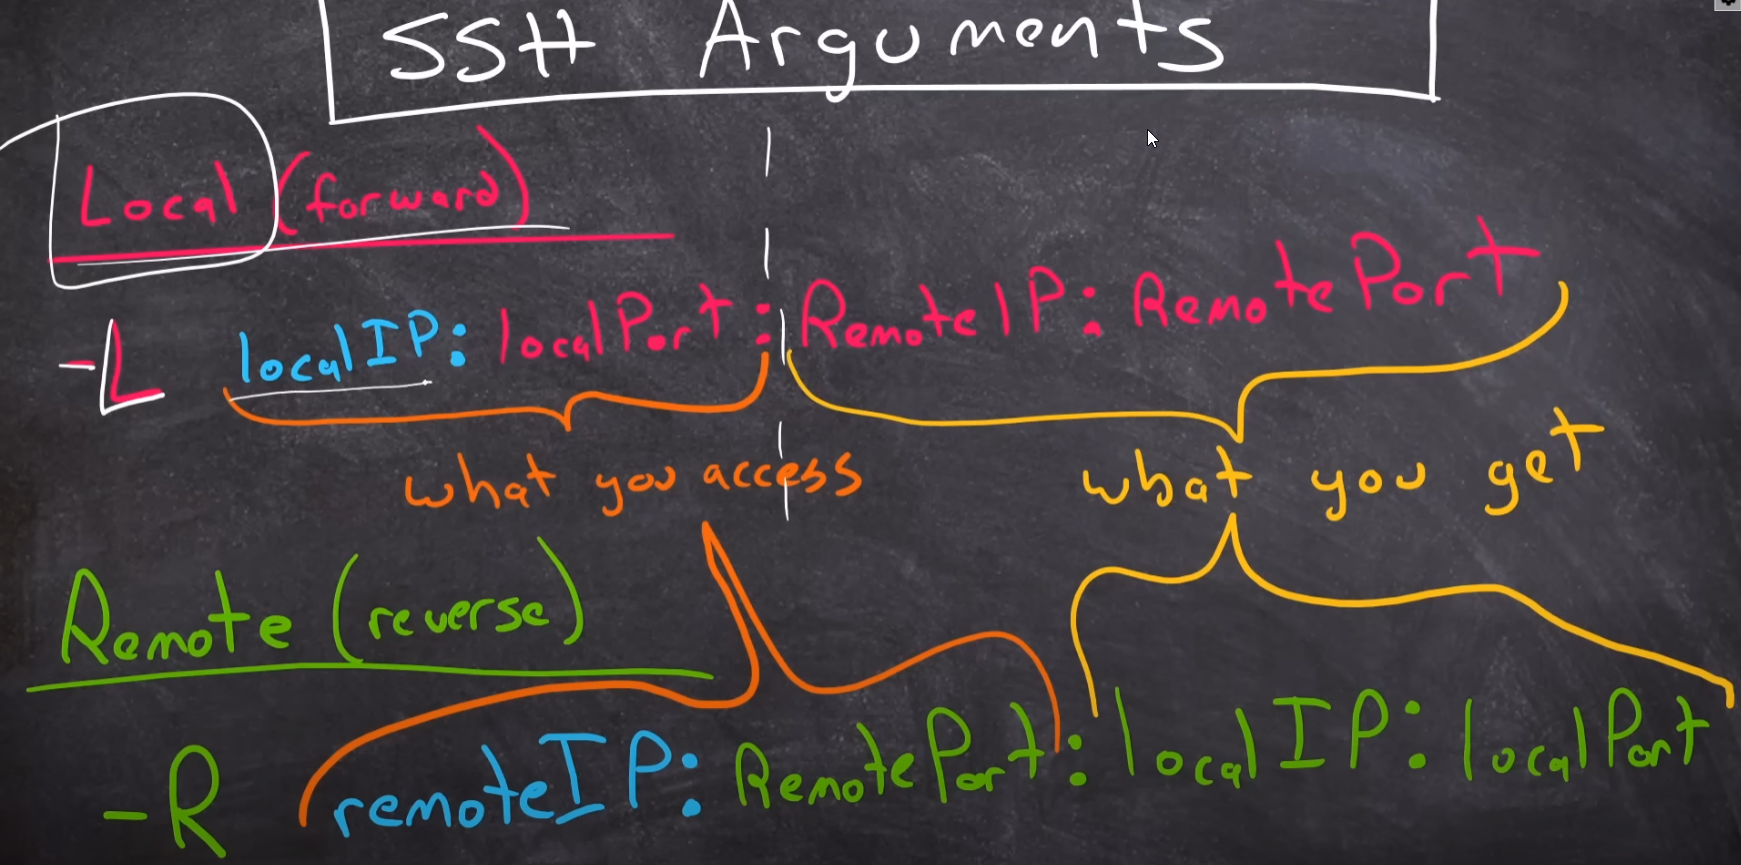 SSH Arguments
Local (forward)
-L localIP: localPort: RemoteIP: RemotePort
what you access what you get
Remote (reverse)
-R remoteIP: RemotePort: localIP: localPort